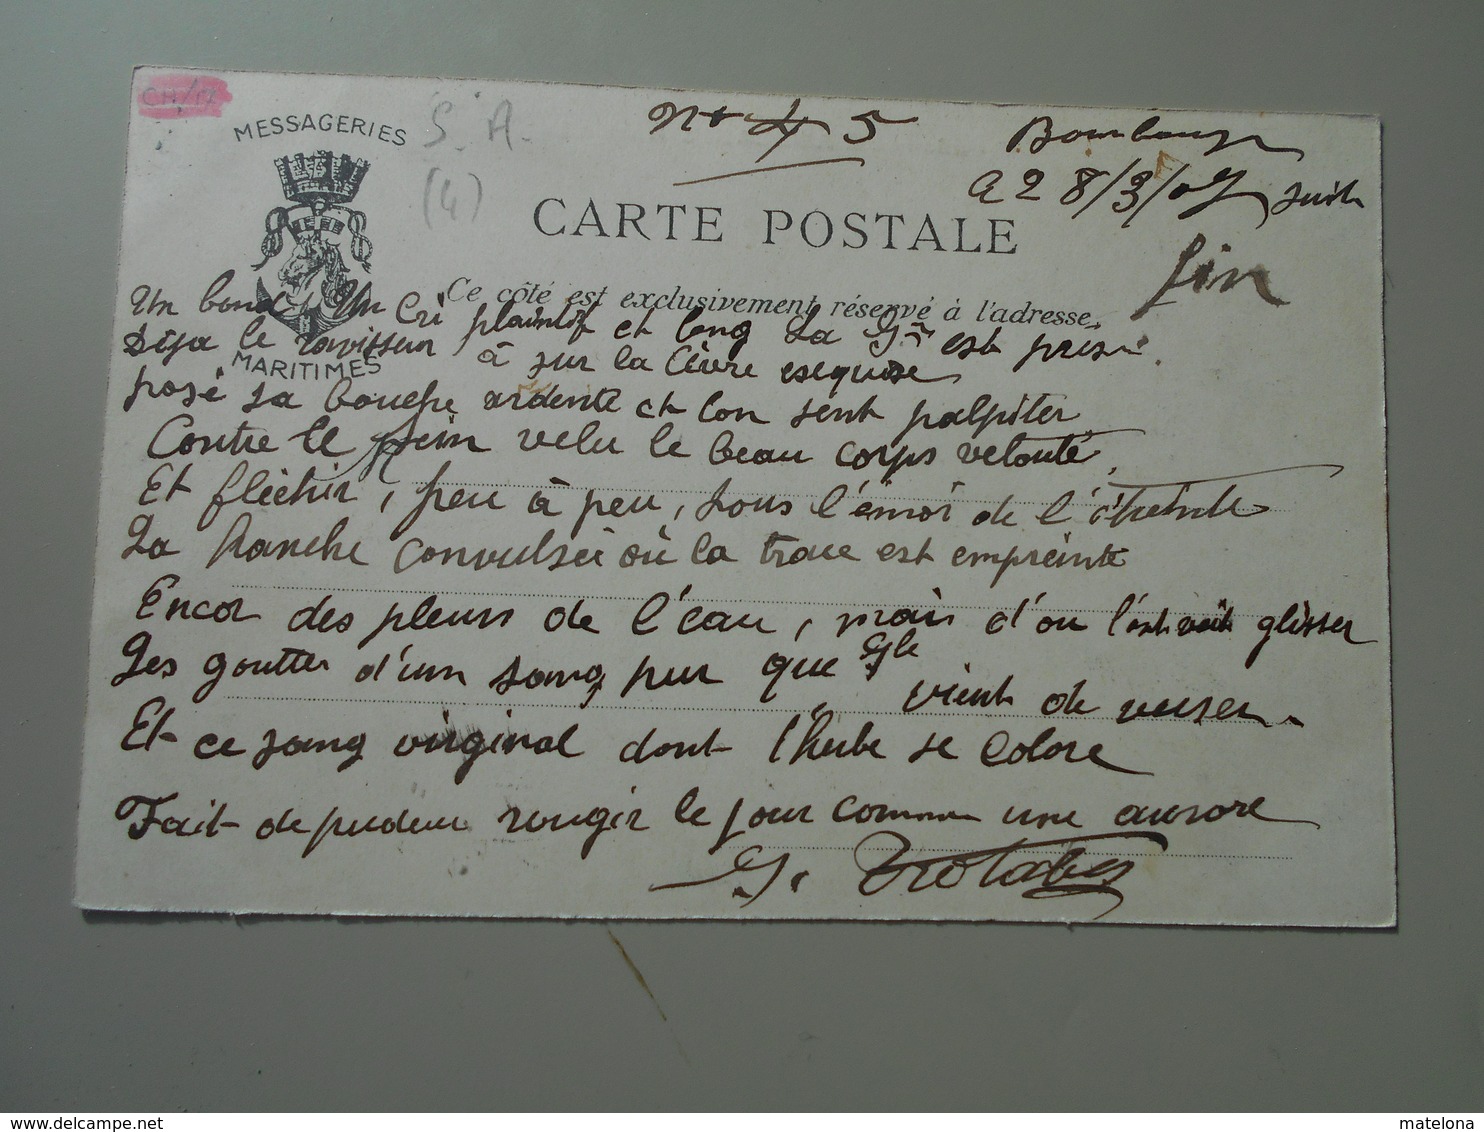 CH/17
MESSAGERIES
MARITIMES
S. A.
(4)
N° 4 5
a 2 8/3/07 suite
fin
CARTE POSTALE
Ce côté est exclusivement réservé à l'adresse.
Un bond, Un cri plaintif et long La est prise.
Déja le ravisseur à sur la lèvre exquise
posé sa bouche ardente et lon sent palpiter
Contre le sein velu le beau corps velouté,
Et fléchir, peu à peu, sous l'émoi de l'étreinte
La hanche convulsée où la trace est empreinte
Encor des pleurs de l'eau, mais d'ou l'on voit glisser
Les gouttes d'un sang pur que vient de verser.
Et ce sang virginal dont l'herbe se colore
Fait de pudeur rougir le jour comme une aurore
G. Trotabas
matelona